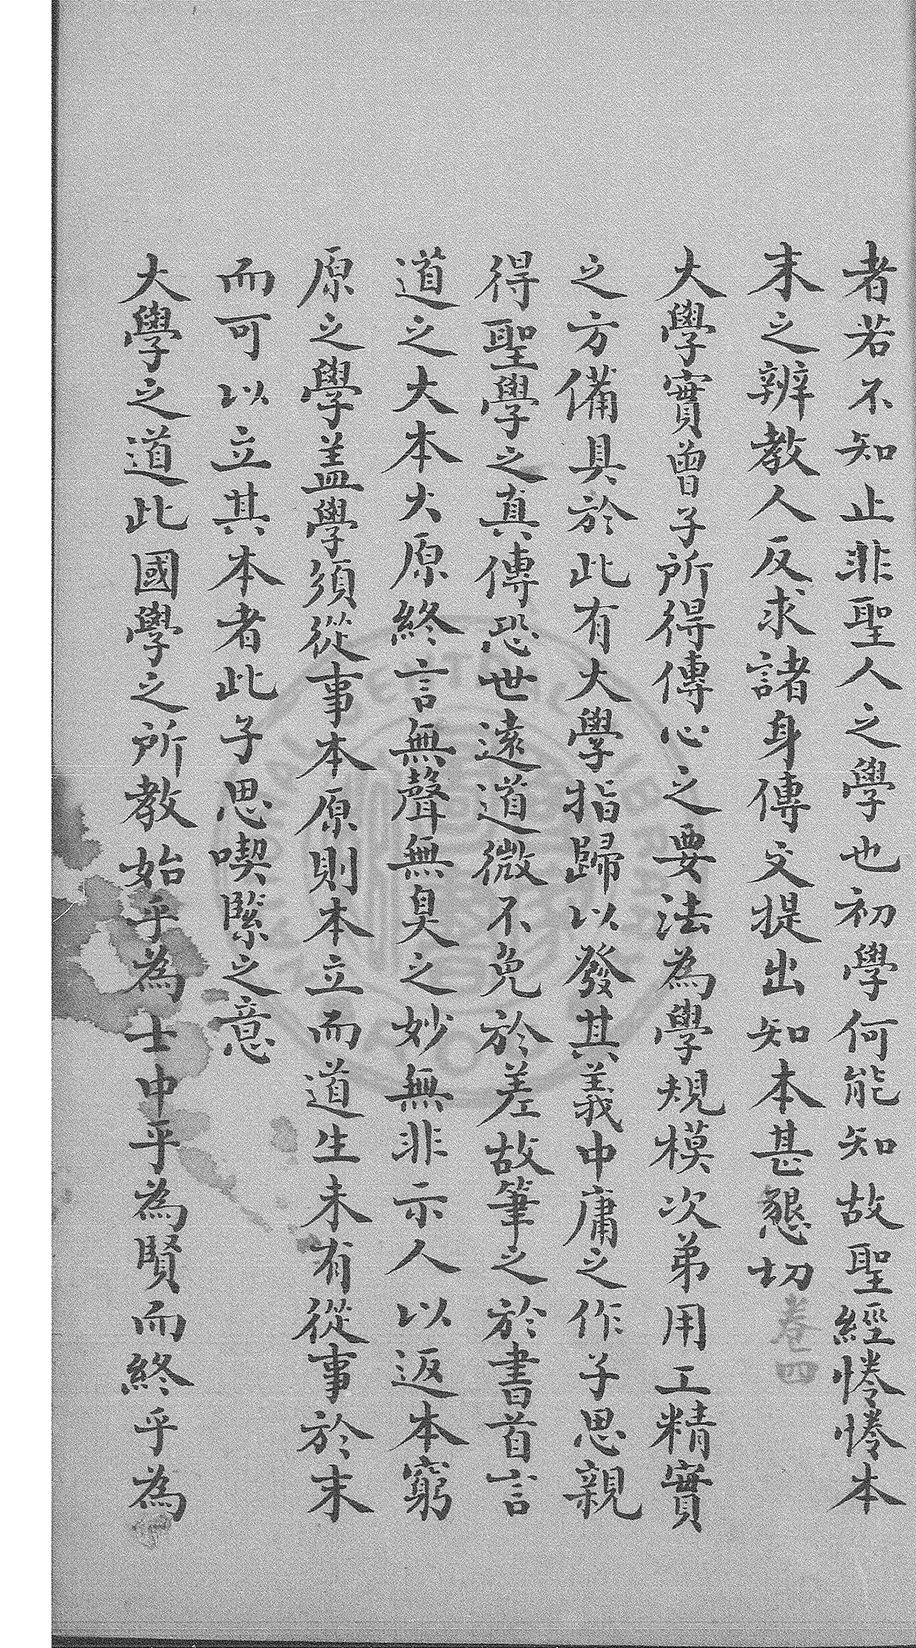 者若不知止非聖人之學也初學何能知故聖經惓惓本
末之辨教人反求諸身傳文提出知本甚懇切卷四
大學實曾子所得傳心之要法為學規模次第用工精實
之方備具於此有大學指歸以發其義中庸之作子思親
得聖學之真傳恐世遠道微不免於差故筆之於書首言
道之大本大原終言無聲無臭之妙無非示人以返本窮
原之學盖學須從事本原則本立而道生未有從事於末
而可以立其本者此子思喫緊之意
大學之道此國學之所教始乎為士中乎為賢而終乎為